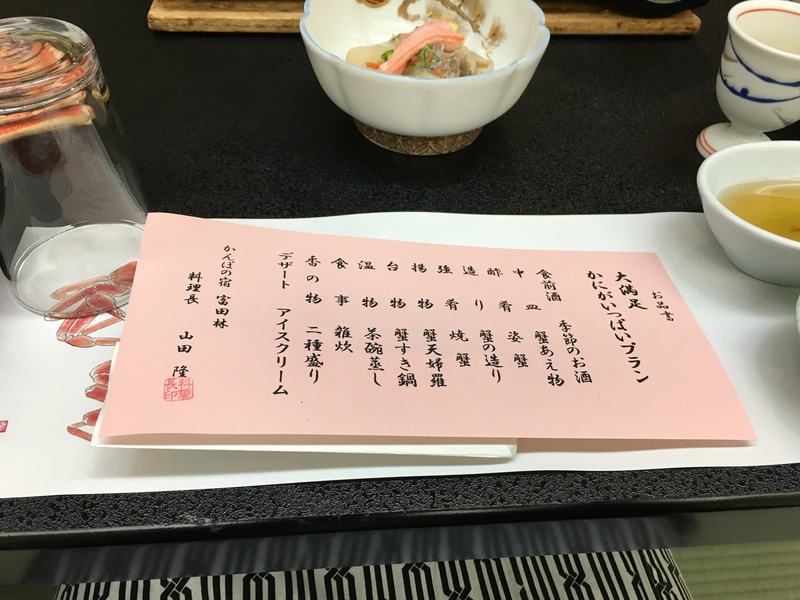 お品書
大満足
かにがいっぱいプラン
食前酒 季節のお酒
中皿 蟹あえ物
酢肴 姿蟹
造り 蟹の造り
強肴 焼蟹
揚物 蟹天婦羅
台物 蟹すき鍋
温物 茶碗蒸し
食事 雑炊
香の物 二種盛り
デザート アイスクリーム
かんぽの宿 富田林
料理長 山田 隆
料理長印